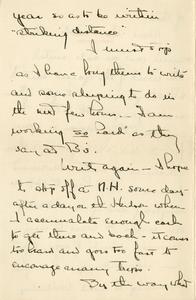 years so as to be within
"striking distance"
I must stop
as I have long theme to write
and some sleeping to do in
the next few hours. I am
working so hard as they
say at Bo.
Write again - I hope
to stop off at N.H. some day
after a day at the when
I accumulate enough cash
to get there and back - it comes
too hard and goes too fast to
encourage many trips.
By the way what